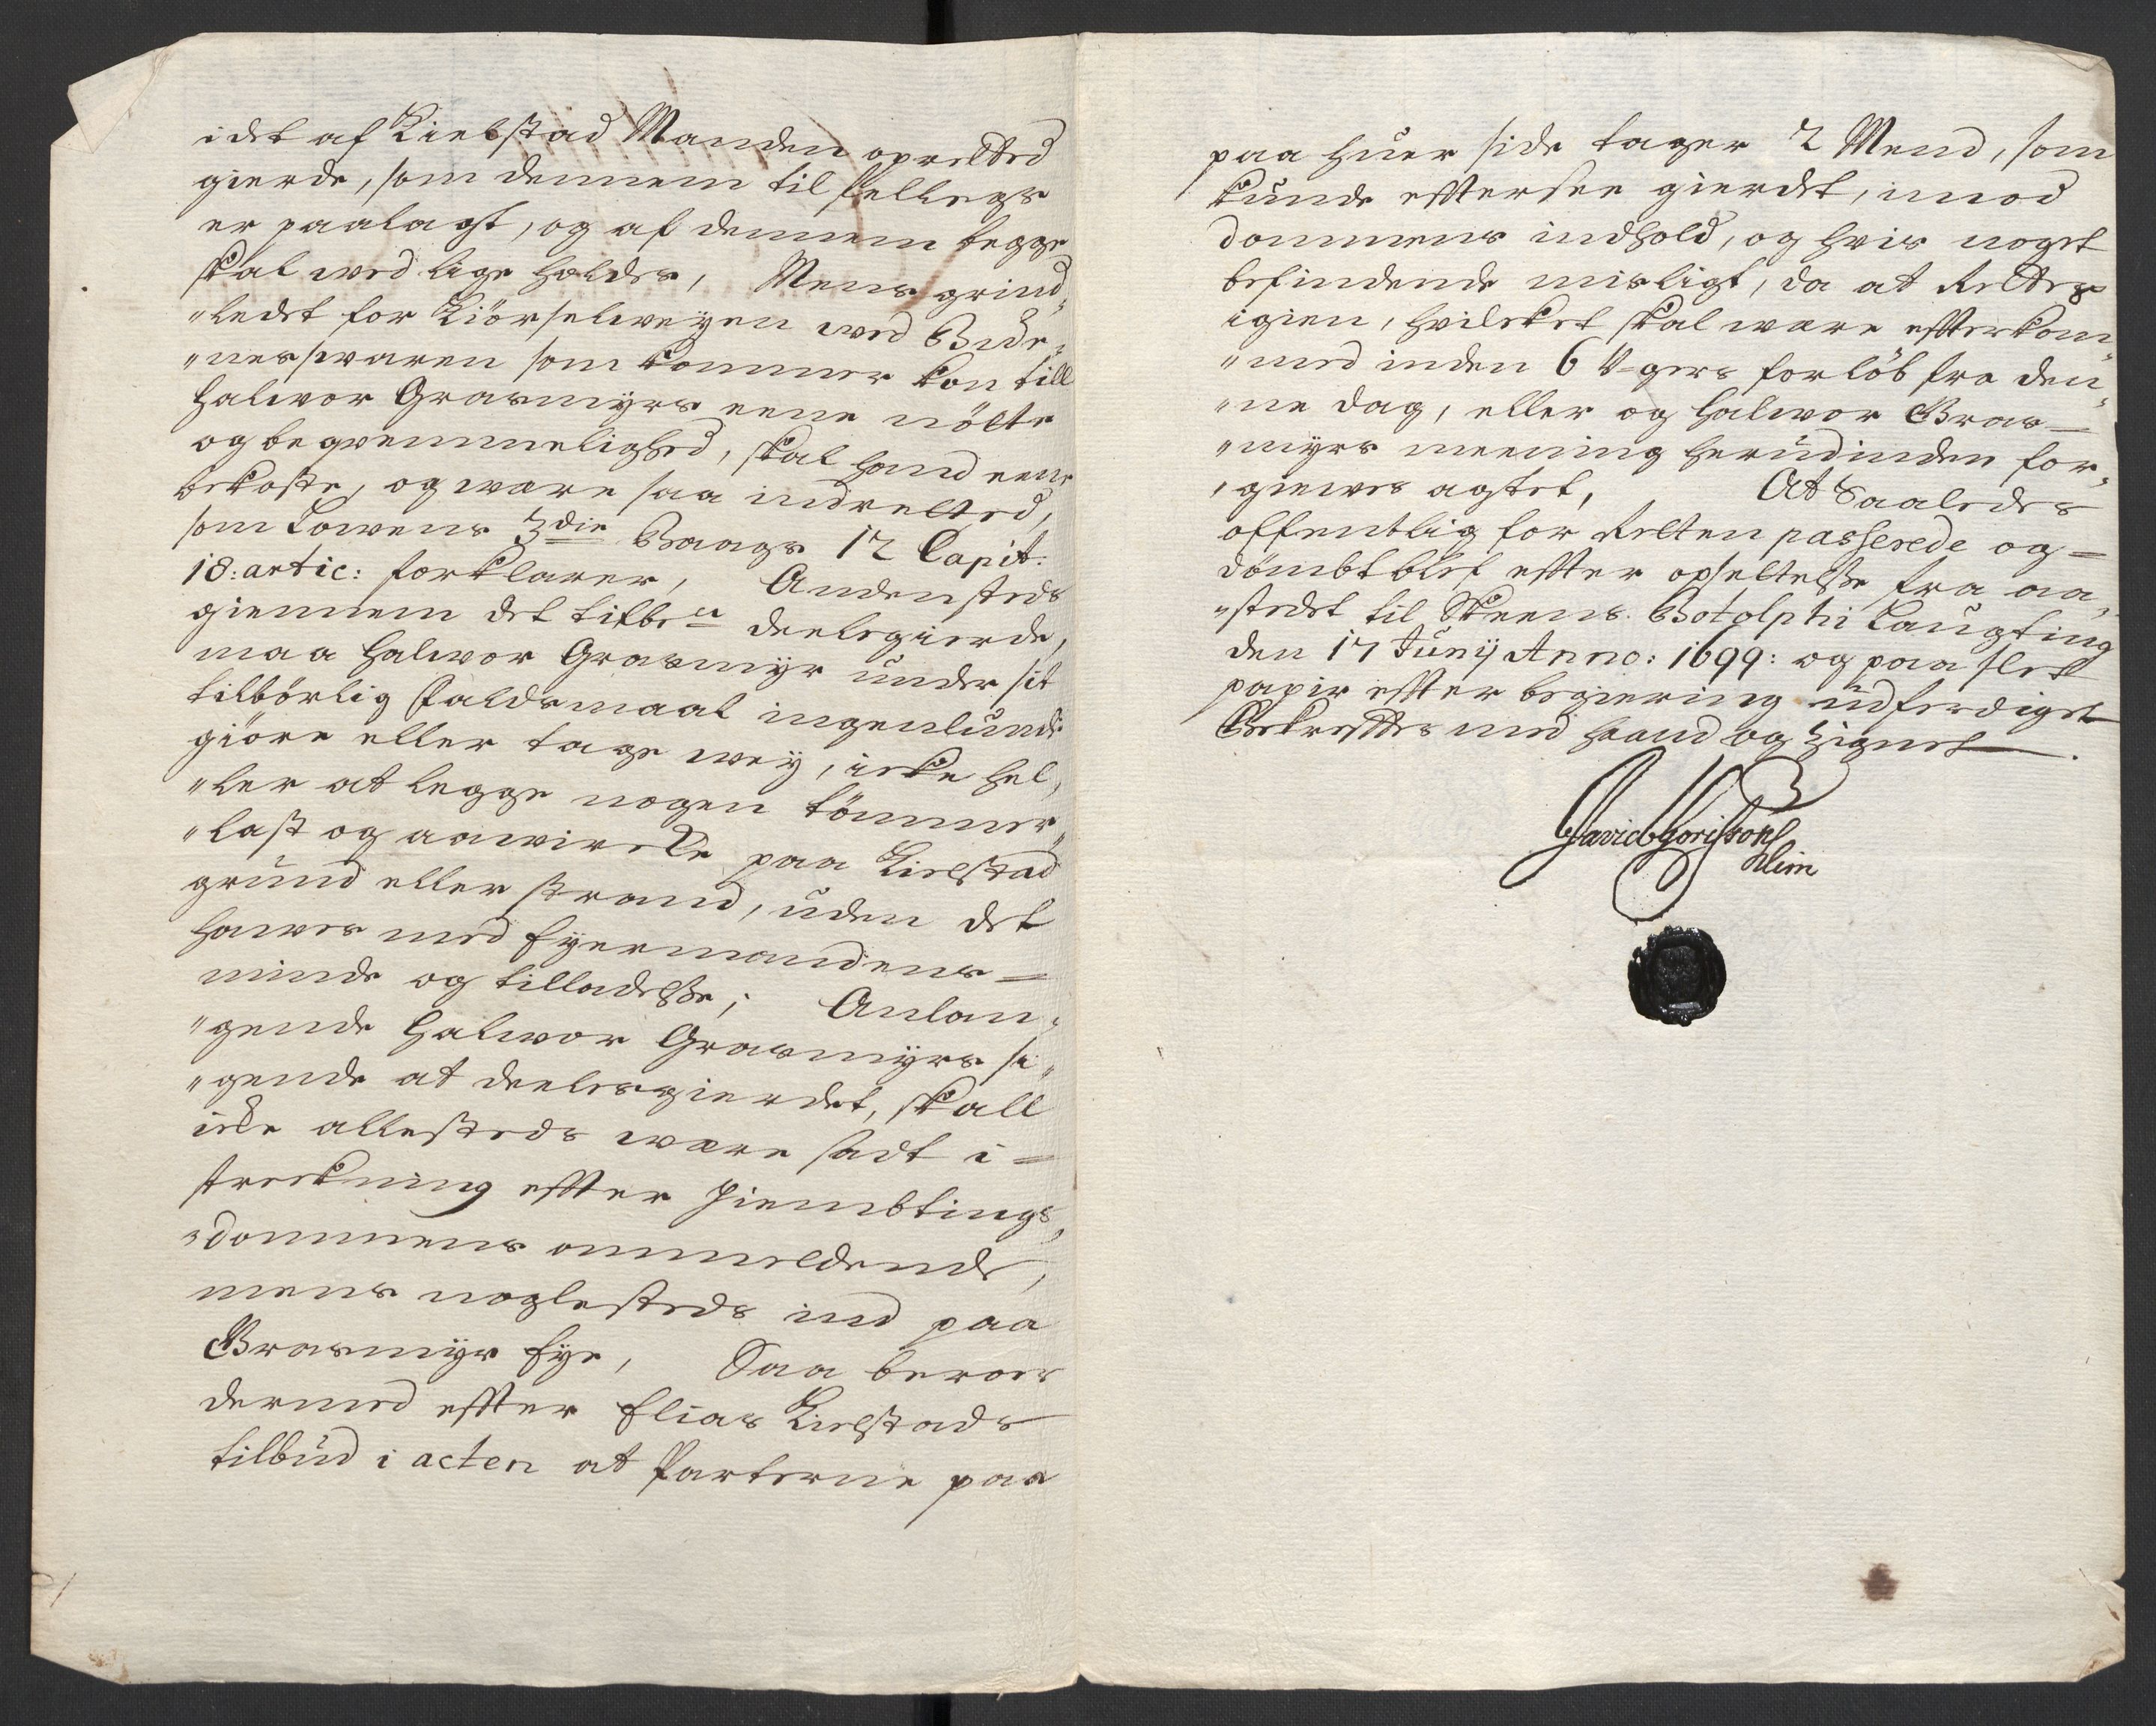 idet af Kielstad Manden opretted
gierde, som dennem til felleqs
er paalagt, og af dennem begge
skal wed lige holdes, Mens grind„
„ledet for Kiörselweyen wed Bude„
„neswaren som kommer kon till
Halwor Grasmÿrs eene nötte
og beqvemmelighed, skal hand eene
bekoste, og ware saa indretted,
som Lowens 3die Baags 12 Capit:
18: artic: forklarer, Andensteds
giennem det tilbem deelegierde,
maa Halwor Grasmÿr under sit
tilbörlig faldsmaal ingenlunde
giöre eller tage weÿ, icke hel„
„ler at legge nogen tömmer„
„last og aawircke paa Kielstad
grund eller strand, uden det
hawes med Eÿermandens =
minde og tilladelsse; Anlan„
„gende Halwor Grasmÿrs si„
„gende at deelesgierdet, skall
icke allesteds ware sadt i =
streckning effter Hiembtings„
„dommens ommeldende,
mens noglesteds ind paa
Grasmÿr Eÿe, Saa beroer
dermed effter Elias Kielstads
tilbud i acten at Parterne paa
paa huer side tager 2 Mend, som
kunde efftersee gierdet, imod
dommens indhold, og hvis noget
befindende misligt, da at Rettes
igien, hvilcket skal ware effterkom„
„med inden 6 Ugers forlöb fra den„
„ne dag, eller og Halwor Gras=
„myrs meening herudinden for„
„giewes agtet, At Saaledes
offentlig for Retten passerede og =
dömbt blef effter opsettelsse fra aa„
„stedet til Skeens Botolphi Laugting
den 17 Junij Anno: 1699: og paa slet
papir effter begiering udferdiget
Bekreffter med Haand og Zignet
David Goris Sons
Klim